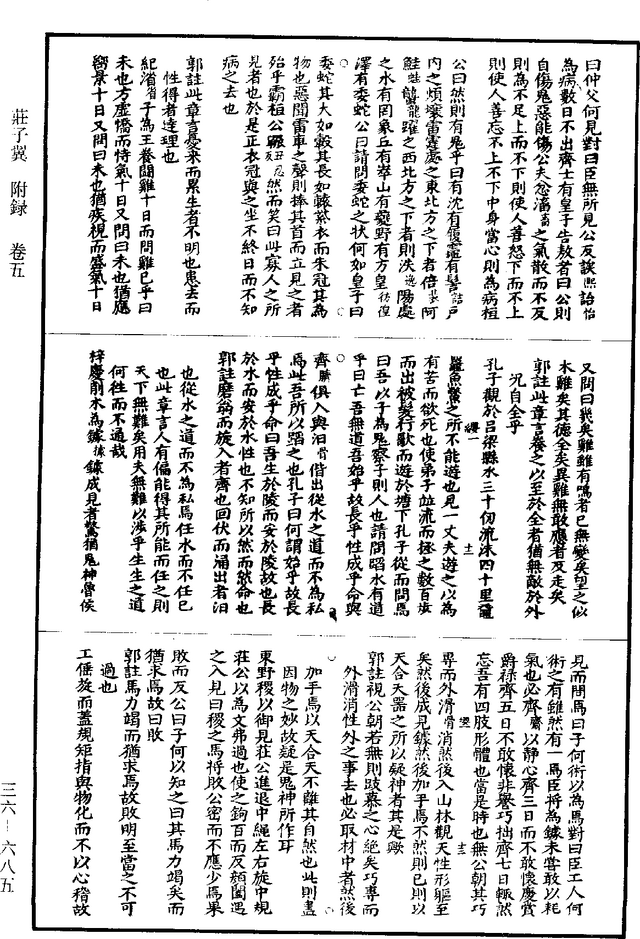 曰仲父何見對曰臣無所見公反誒熙詒怡
為病數日不出齊士有皇子告敖者曰公則
自傷鬼惡能傷公夫忿滀之氣散而不反
則為不足上而不下則使人善怒下而不上
則使人善忘不上不下中身當心則為病桓
公曰然則有鬼乎曰有沈有履竈有髻詰戶
內之煩壤雷霆處之東北方之下者倍裴阿
鮭蛙蠪龍躍之西北方之下者則泆逸陽處
之水有罔象丘有峷山有夔野有方皇彷徨
澤有委蛇公曰請問委蛇之狀何如皇子曰
委蛇其大如轂其長如轅紫衣而朱冠其為
物也惡聞雷車之聲則捧其首而立見之者
殆乎霸桓公辴丑忍然而笑曰此寡人之所
見者也於是正衣冠與之坐不終日而不知
病之去也
郭註此章言憂來而累生者不明也患去而
性得者達理也
紀渻省子為王養鬭雞十日而問雞已乎曰
未也方虛憍而恃氣十日又問曰未也猶應
嚮景十日又問曰未也猶疾視而盛氣十日
又問曰幾矣雞雖有鳴者已無變矣望之似
木雞矣其德全矣異雞無敢應者反走矣
郭註此章言養之以至於全者猶無敵於外
況自全乎
孔子觀於呂梁縣水三十仞流沫四十里黿
鼉魚鱉之所不能遊也見一丈夫遊之以為
有苦而欲死也使弟子並流而拯之數百步
而出被髮行歌而遊於塘下孔子從而問焉
曰吾以子為鬼察子則人也請問蹈水有道
乎曰亡吾無道吾始乎故長乎性成乎命與
齊臍俱入與汩骨偕出從水之道而不為私
焉此吾所以蹈之也孔子曰何謂始乎故長
乎性成乎命曰吾生於陵而安於陵故也長
於水而安於水性也不知吾所以然而然命也
郭註磨翁而旋入者齊也回伏而涌出者汩
也從水之道而不為私焉任水而不任己
也此章言人有偏能得其所能而任之則
天下無難矣用夫無難以涉乎生生之道
何往而不通哉
梓慶削木為鐻據鐻成見者驚猶鬼神魯侯
見而問焉曰子何術以為焉對曰臣工人何
術之有雖然有一焉臣將為鐻未嘗敢以耗
氣也必齊齋以靜心齊三日而不敢懷慶賞
爵祿齊五日不敢懷非譽巧拙齊七日輒然
忘吾有四肢形體也當是時也無公朝其巧
專而外滑骨消然後入山林觀天性形軀至
矣然後成見鐻然後加手焉不然則已則以
天合天器之所以疑神者其是歟
郭註視公朝若無則跂慕之心絕矣巧專而
外滑消性外之事去也必取材中者然後
加手焉以天合天不離其自然也此則盡
因物之妙故疑是鬼神所作耳
東野稷以御見莊公進退中繩左右旋中規
莊公以為文弗過也使之鉤百而反顏闔遇
之入見曰稷之馬將敗公密而不應少焉果
敗而反公曰子何以知之曰其馬力竭矣而
猶求焉故曰敗
郭註馬力竭而猶求焉故敗明至當之不可
過也
工倕旋而蓋規矩指與物化而不以心稽故
莊子翼 附錄 卷五
三六-六八五